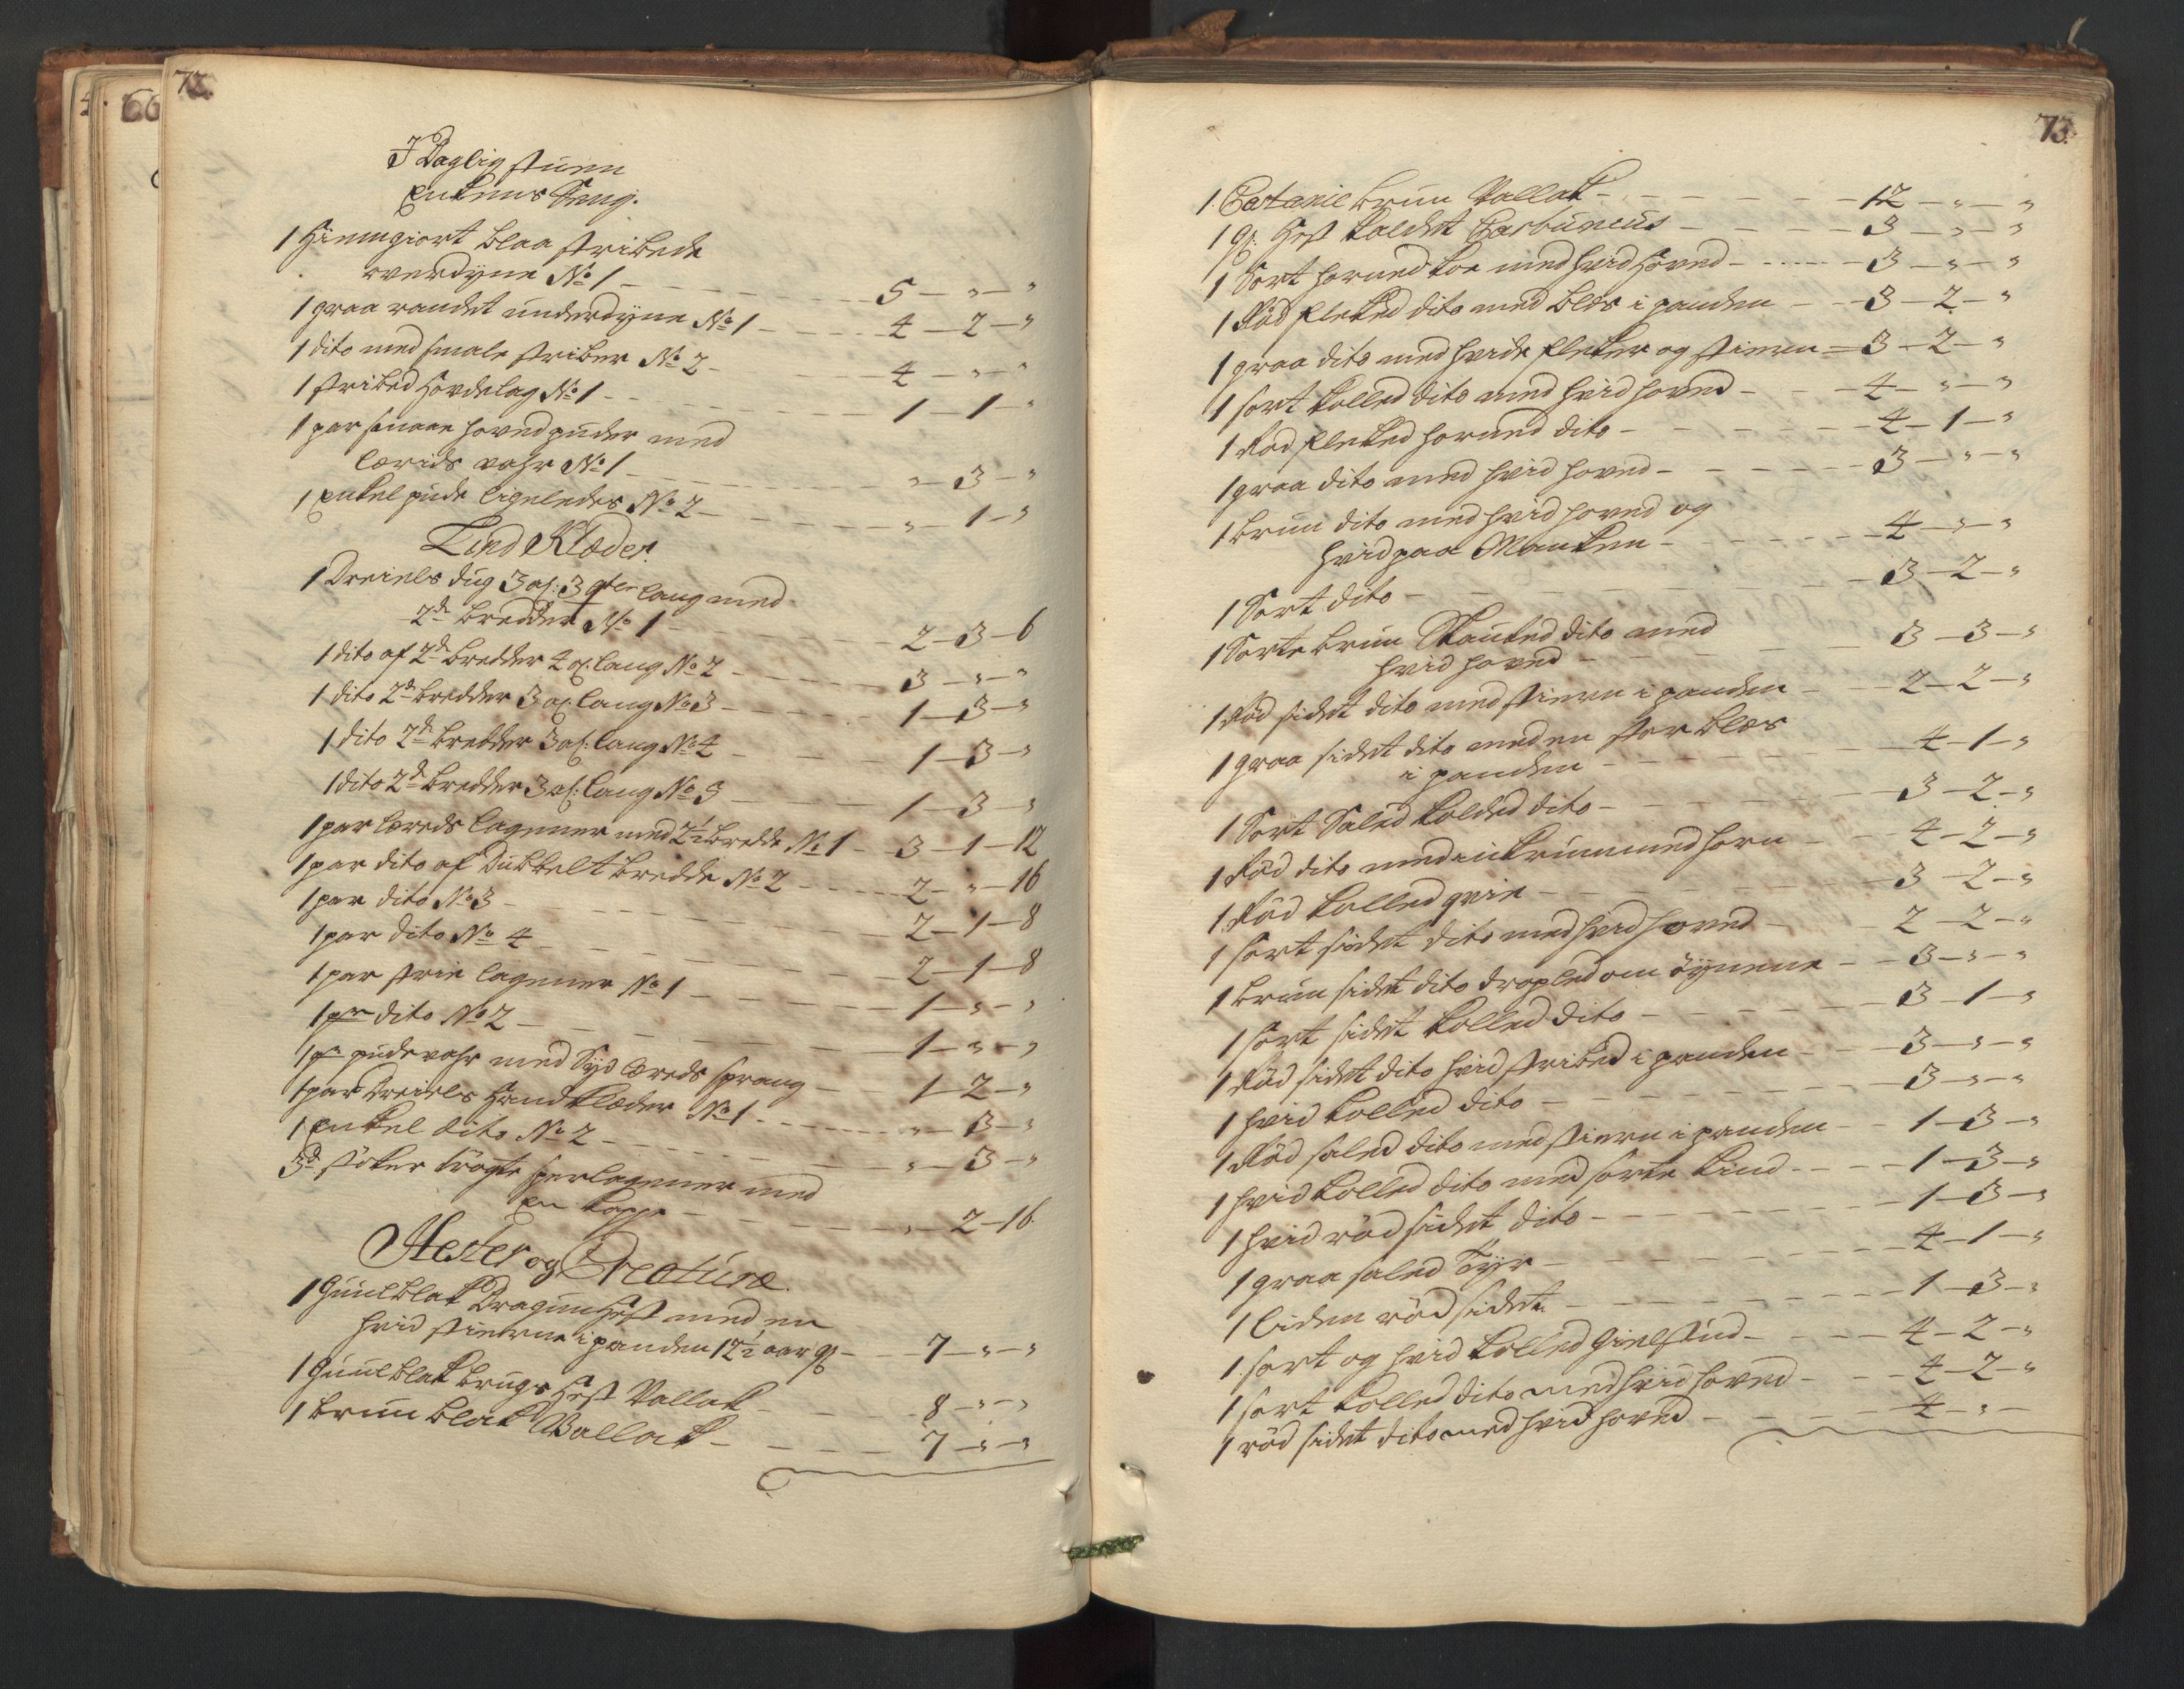 72.
66
I Daglig stuen
Enkens Seng.
1 Hiemgiort blaa stribede
overdyne No 1 - 5 - " - "
1 graa randet underdyne No 1 - 4 - 2 - "
1 dito med smale striber No 2 - 4 - " - "
1 stribed Hovdelag No 1 - 1 - 1 - "
1 par smaae hoved puder med
lærids vahr No 1 - " - 3 - "
1 Enkel pude ligeledes No 2 - " - 1 - "
Lind Klæder.
1 Dreiels dug 3 al: 3 qter lang med
2de bredder No 1 - 2 - 3 - 6
1 dito af 2de bredder 4 al: lang No 2 - 3 - " - "
1 dito 2de bredder 3 al: lang No 3 - 1 - 3 - "
1 dito 2de bredder 3 al: lang No 4 - 1 - 3 - "
1 dito 2de bredder 3 al: lang No 5 - 1 - 3 - "
1 par lereds lagener med 2½ bredde No 1 - 3 - 1 - 12
1 par dito af Dubbelt bredde No 2 - 2 - " - 16
1 par dito No 3 - 2 - 1 - 8
1 par dito No 4 - 2 - 1 - 8
1 par strie lagener No 1 - 1 - " - "
1 pr dito No 2 - 1 - " - "
1 pr pudevahr med Syd lereds sprang - 1 - 2 - "
1 par Dreiels Haandklæder No 1 - " - 3 - "
1 Enkel dito No 2 - " - 3 - "
3de støker sperlagener med
en kappe - " - 2 - 16
Hester og Creature.
1 Guulblak Dragun Hest med en
hvid stierne i panden 12½ aar gl - 7 - " - "
1 Guulblak brugs Hest Vallak - 8 - " - "
1 bruun blak Vallak - 7 - " - "
73.
1 Castanie bruun Vallak - 12 - " - "
1 gl: Hest kaldet Carbuncus - 3 - " - "
1 Sort horned koe med hvid Hoved - 3 - " - "
1 Rød fleked dito med bles i panden - 3 - 2 - "
1 graa dito med hvide fleker og stiern - 3 - 2 - "
1 sort kolled dito med hvid hoved - 4 - " - "
1 Rød fleked horned dito - 4 - 1 - "
1 graa dito med hvid hoved - 3 - " - "
1 bruun dito med hvid hoved og
hvid paa Manken - 4 - " - "
1 Sort dito - 3 - 2 - "
1 Sorte bruun Skauked dito med
hvid hoved - 3 - 3 - "
1 Rød sidet dito med stiern i panden - 2 - 2 - "
1 graa sidet dito med en stor bles
i panden - 4 - 1 - "
1 Sort Saled kolded dito - 3 - 2 - "
1 Rød dito med en krummed horn - 4 - 2 - "
1 Rød kolled qvie - 3 - 2 - "
1 sort sidet dito med hvid hoved - 2 - 2 - "
1 bruun sidet dito dropled om øynene - 3 - " - "
1 sort sidet kolled dito - 3 - 1 - "
1 Rød sidet dito hvid stribed i panden - 3 - " - "
1 hvid kolled dito - 3 - " - "
1 Rød saled dito med stiern i panden - 1 - 3 - "
1 hvid kolled dito med sorte kind - 1 - 3 - "
1 hvid rød sidet dito - 1 - 3 - "
1 graa saled Tyr - 4 - 1 - "
1 liden rød sidet - 1 - 3 - "
1 sort og hvid kolled Gielstud - 4 - 2 - "
1 sort kolled dito med hvid hoved - 4 - 2 - "
1 rød sidet dito med hvid hoved - 4 - " -